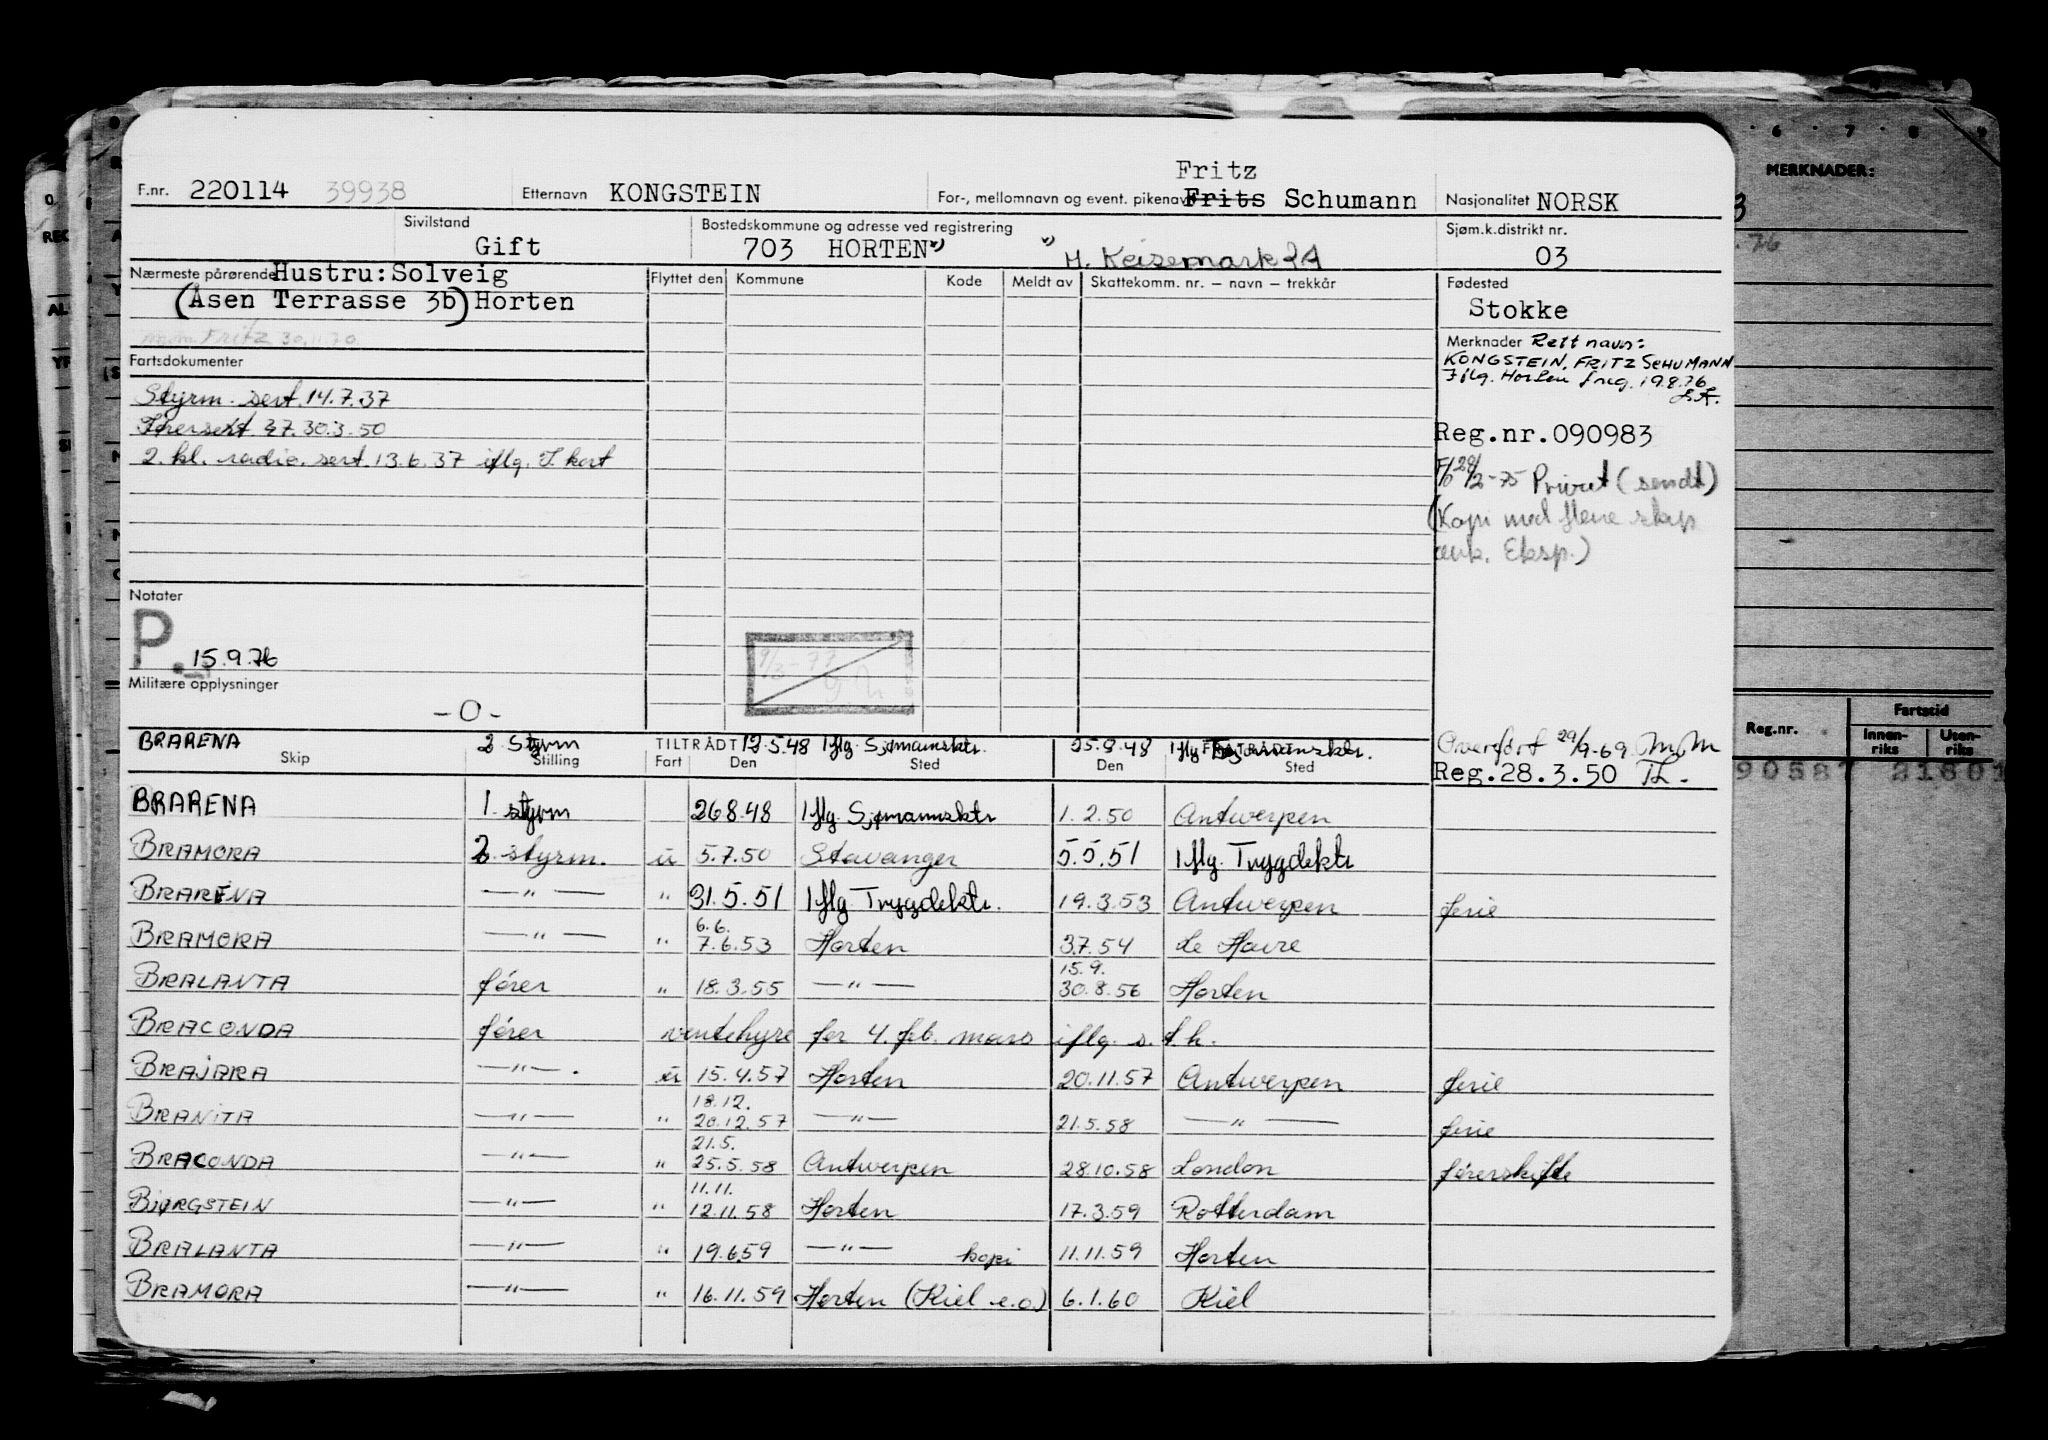 Fritz
F.nr. 220114 39938 Etternavn KONGSTEIN For-, mellomnavn og event. pikenavn Frits Schumann Nasjonalitet NORSK
Sivilstand Gift Bostedskommune og adresse ved registrering 703 HORTEN H. Keisemark 2A Sjøm.k.distrikt nr. 03
Nærmeste pårørende Hustru: Solveig Flyttet den Kommune Kode Meldt av Skattekomm. nr. – navn – trekkår Fødested
(Åsen Terrasse 3b) Horten Stokke
Fritz 30.11.70
Merknader Rett navn:
KONGSTEIN, FRITZ SCHUMANN
Iflg. Horten freg. 19.8.76
Fartsdokumenter
Styrm. sert. 14.7.37
Førersert. 30.3.50
2. kl. radio. sert. 13.6.37 iflg. S. kort
Reg.nr. 090983
-75 Privat (sendt)
(Kopi med flere skip
ank. Eksp.)
Notater
P. 15.9.76
Militære opplysninger
-0-
BRARENA 2 Styrm TILTRÅDT 12.5.48 Iflg. Sjømannsktr. 25.8.48 Iflg. Sjømannsktr. Overført 29/9-69 M.M
Skip Stilling Fart Den Sted Den Sted Reg. 28.3.50 TL.
BRARENA 1. styrm 26.8.48 Iflg. Sjømannsktr 1.2.50 Antwerpen
BRAMORA 2. styrm. u 5.7.50 Stavanger 5.5.51 Iflg. Trygdektr
BRARENA —"— " 31.5.51 Iflg. Trygdektr. 19.3.53 Antwerpen ferie
BRAMORA —"— " 6.6. 7.6.53 Horten 3.7.54 Le Havre
BRALANTA fører " 18.3.55 —"— 15.9. 30.8.56 Horten
BRACONDA fører ventehyre for 4. feb. mars iflg. s.f.h.
BRAJARA —"—. u 15.4.57 Horten 20.11.57 Antwerpen ferie
BRANITA —"— " 18.12. 20.12.57 —"— 21.5.58 —"— ferie
BRACONDA —"— " 21.5. 25.5.58 Antwerpen 28.10.58 London førerskifte
BJØRGSTEIN —"— " 11.11. 12.11.58 Horten 17.3.59 Rotterdam
BRALANTA —"— " 19.6.59 —"— kopi 11.11.59 Horten
BRAMORA —"— " 16.11.59 Horten (Kiel e.o.) 6.1.60 Kiel
6 7 8 9
MERKNADER:
Reg.nr. Fartstid
Innen-riks Uten-riks